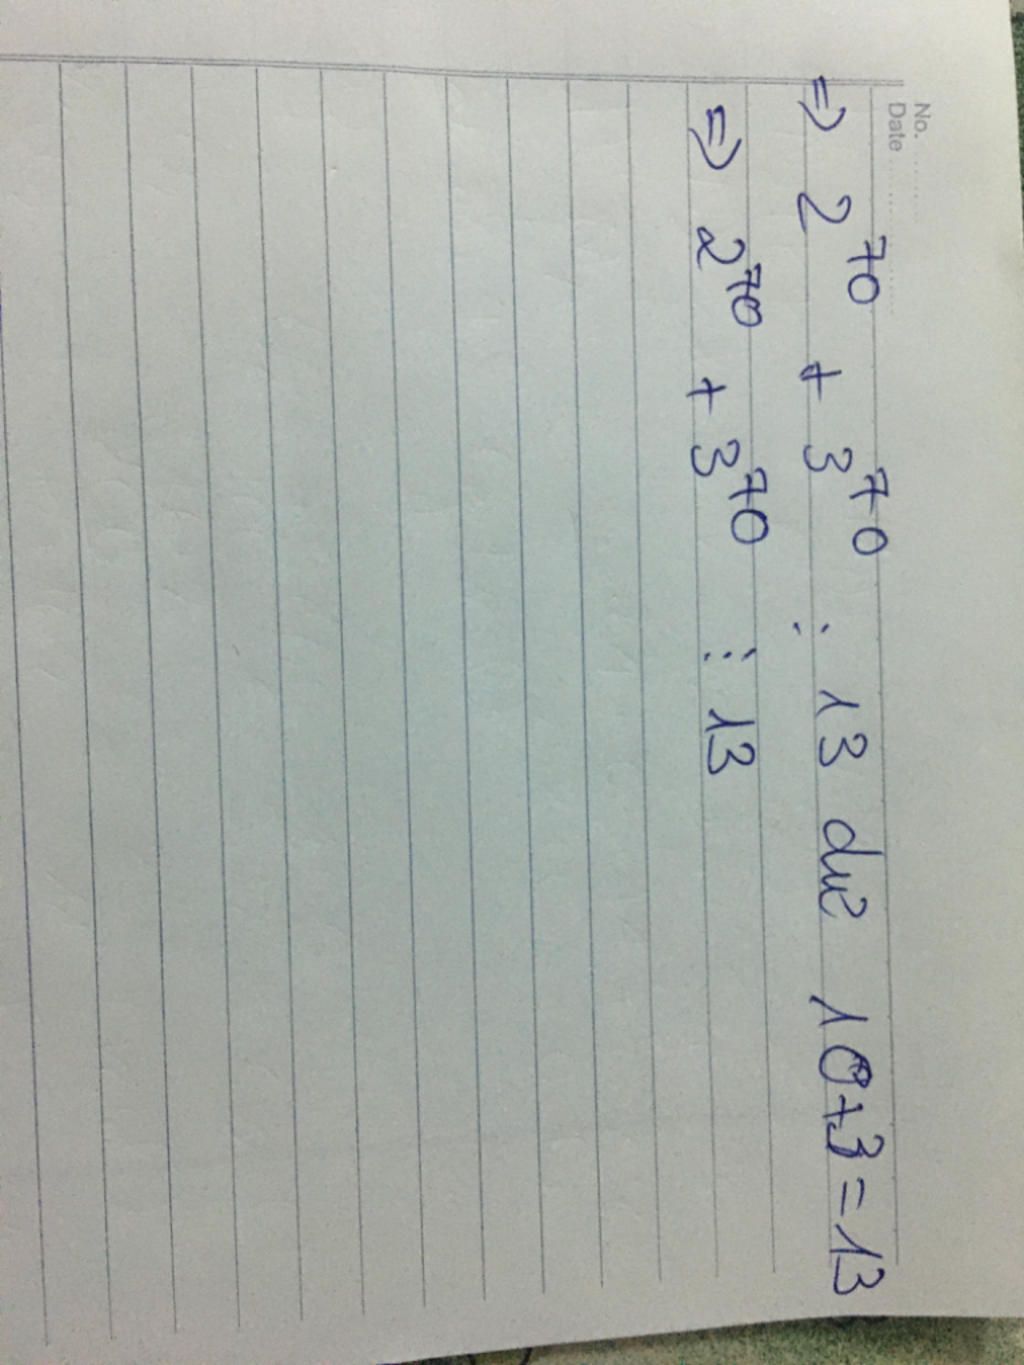 No.
Date
=> 2^70 + 3^70 : 13 dư 10+3=13
=> 2^70 + 3^70 ⋮ 13